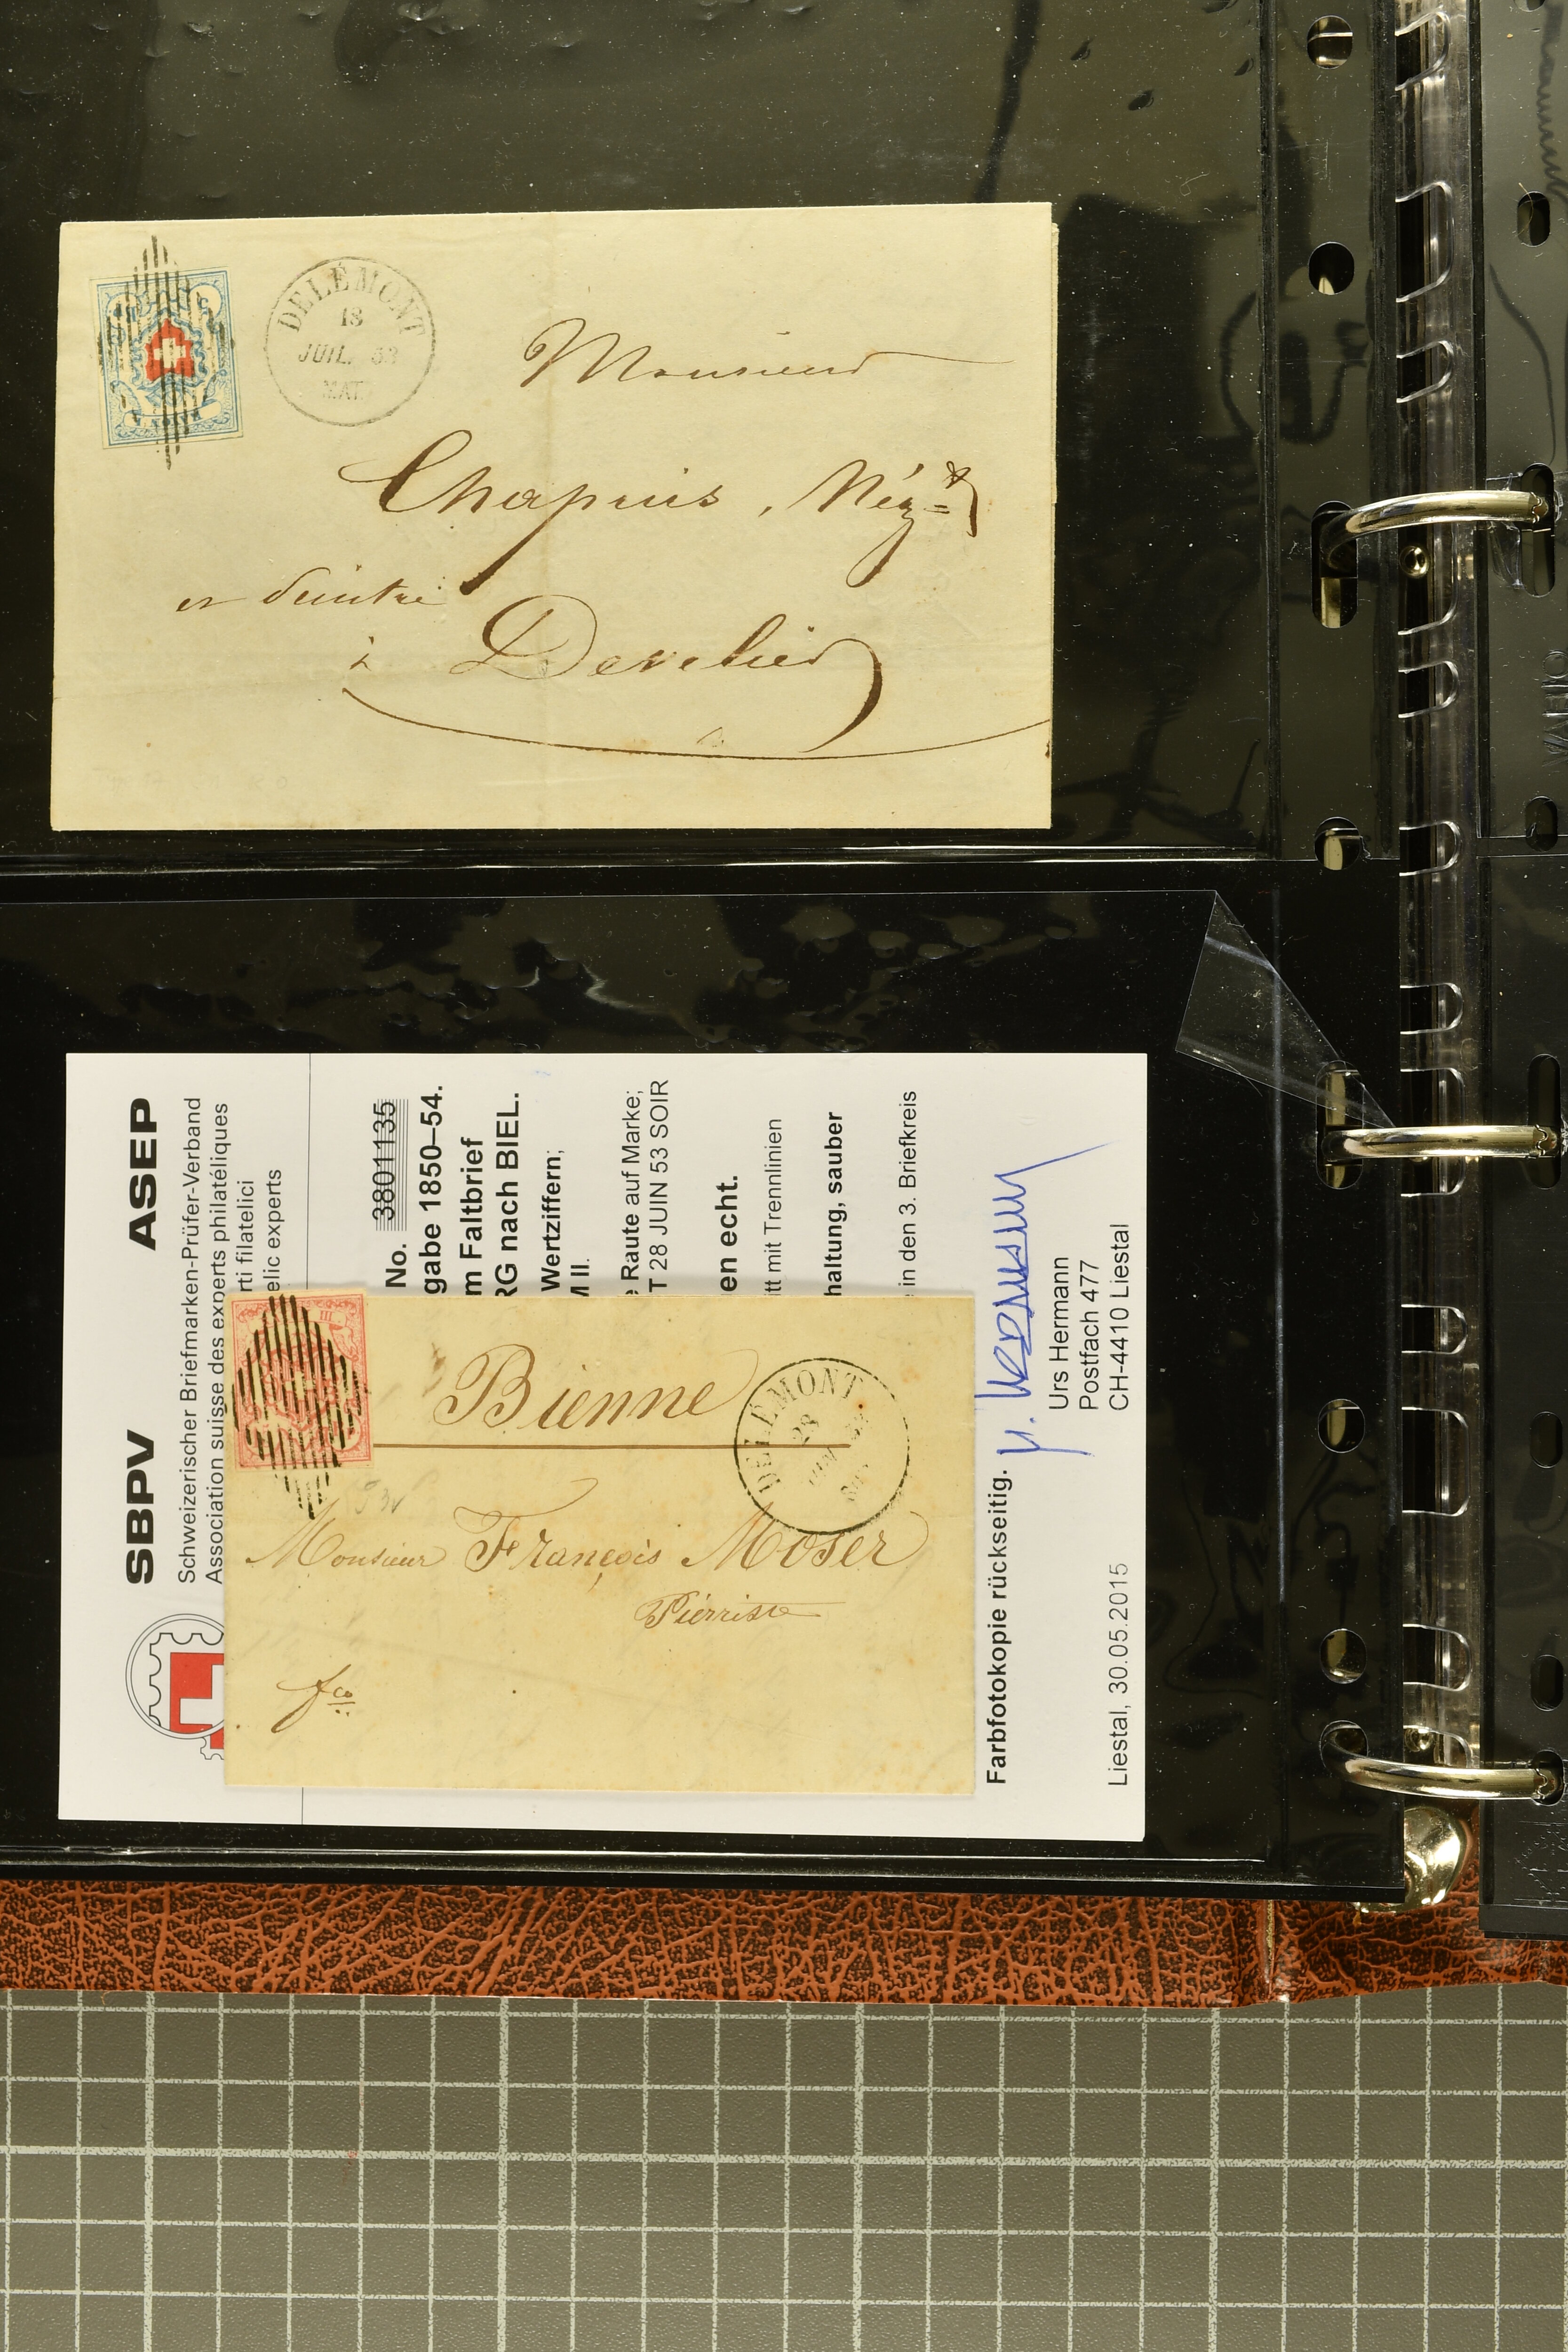 DELÉMONT
18
JUIL. 53
MAT.
Monsieur
Chapuis, Négt
à Develier
SBPV ASEP
Schweizerischer Briefmarken-Prüfer-Verband
Association suisse des experts philatéliques
rti filatelici
elic experts
No. 3801135
gabe 1850–54.
m Faltbrief
RG nach BIEL.
Wertziffern;
M II.
e Raute auf Marke;
T 28 JUIN 53 SOIR
en echt.
tt mit Trennlinien
haltung, sauber
in den 3. Briefkreis
Farbfotokopie rückseitig.
Urs Hermann
Postfach 477
CH-4410 Liestal
Liestal, 30.05.2015
Bienne
DELÉMONT
28
Monsieur François Moser
Pierriste
fco